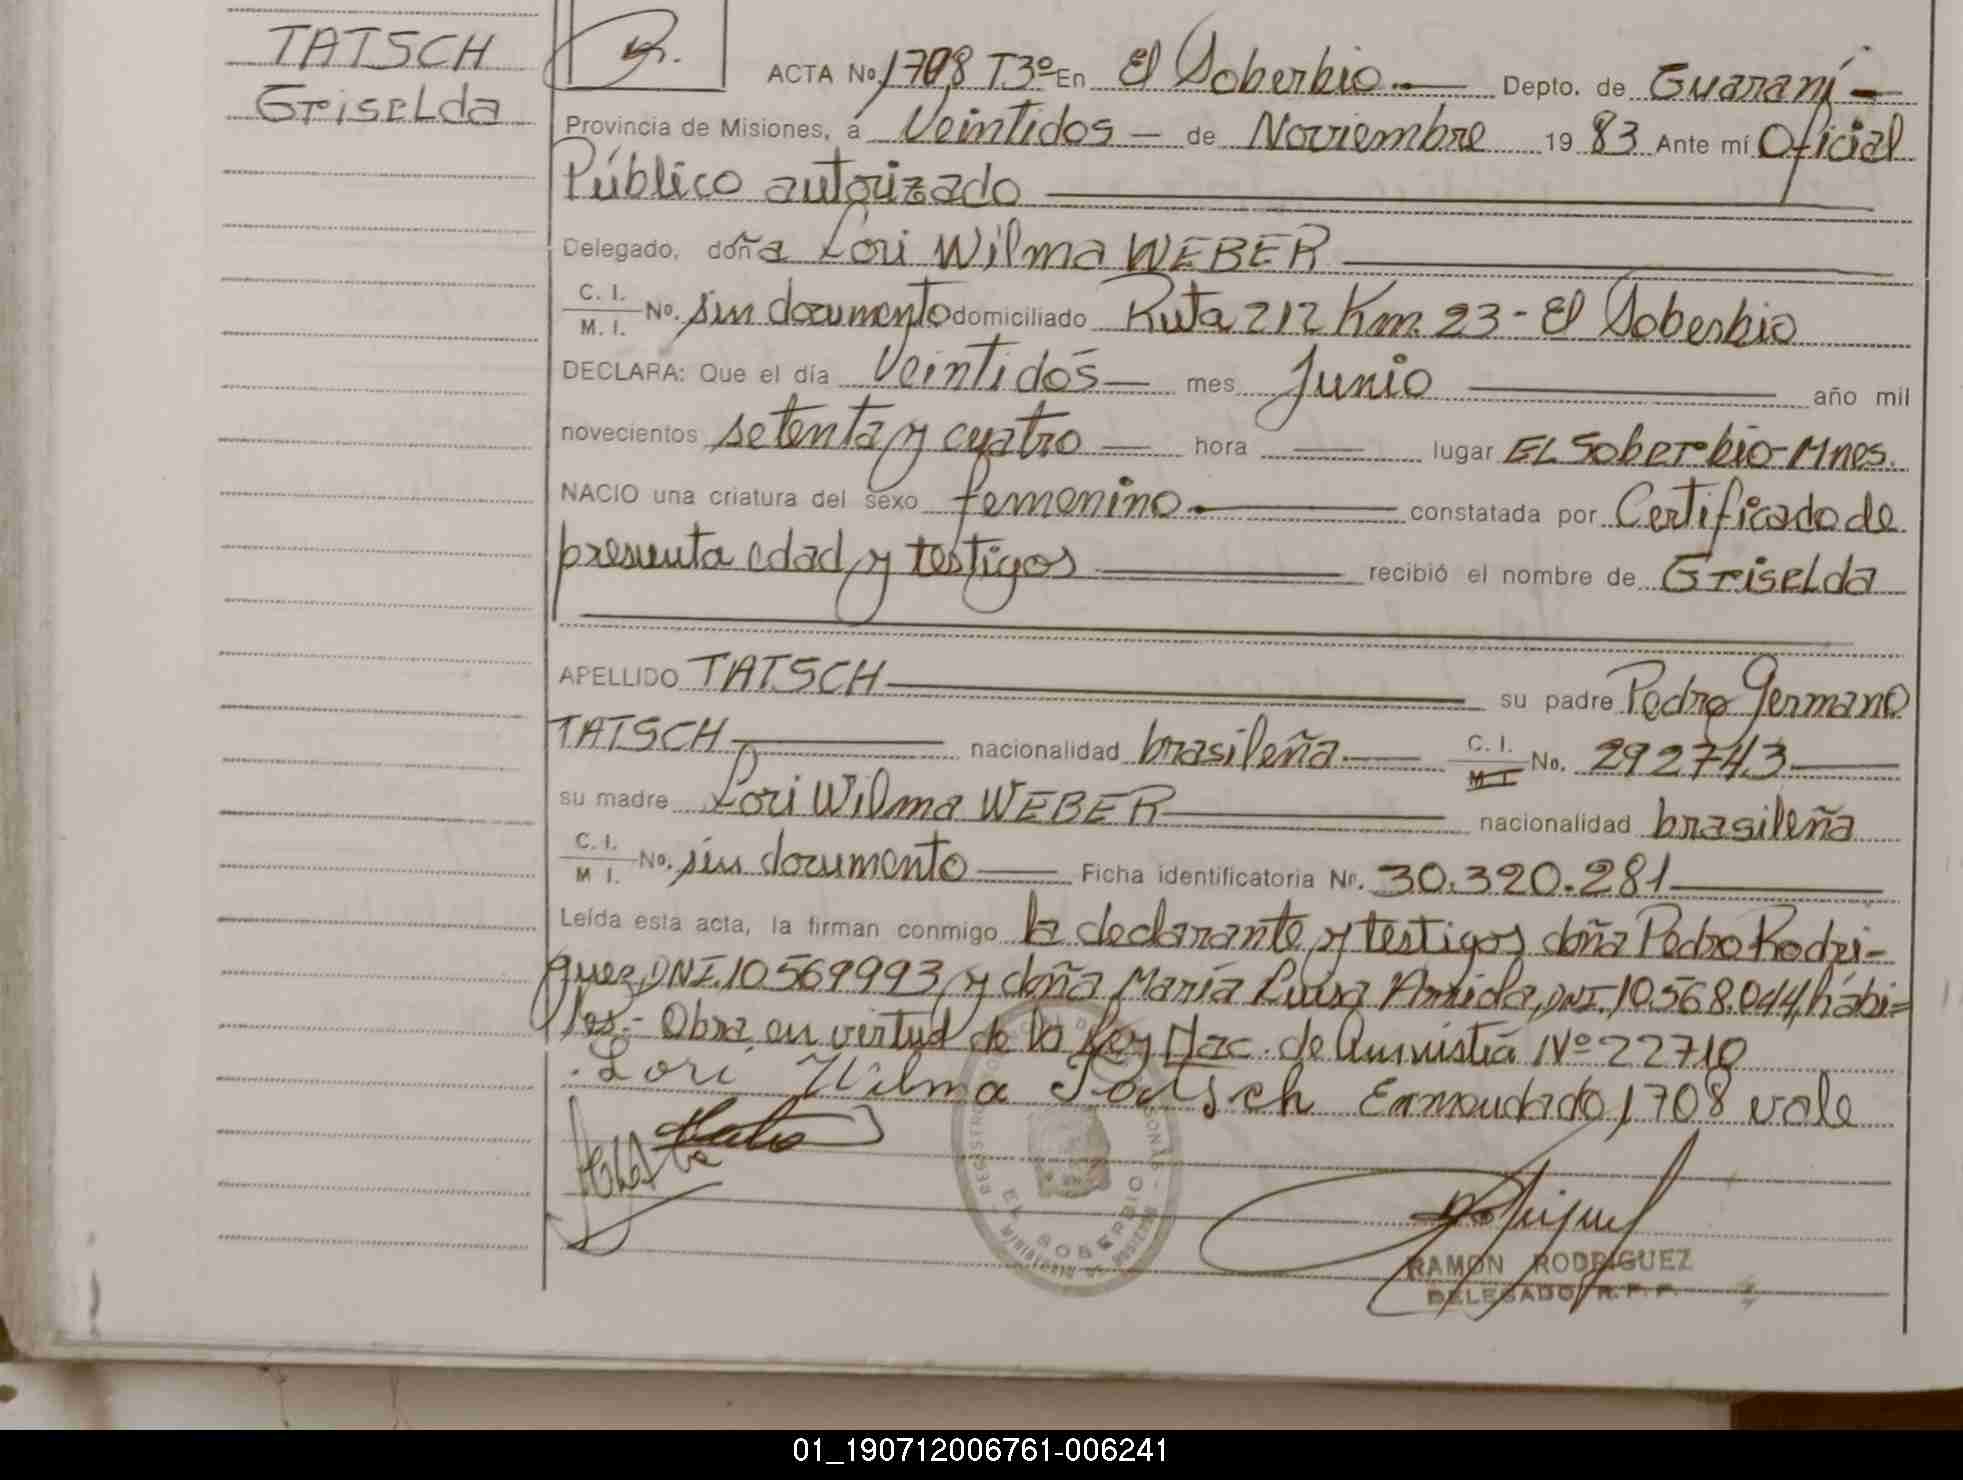 TATSCH
Griselda
ACTA No. 1708 T3º En El Soberbio.— Depto. de Guaraní —
Provincia de Misiones, a Veintidos — de Noviembre 19 83 Ante mí Oficial
Público autorizado
Delegado, doña Lori Wilma WEBER
C. I. / M. I. No. sin documento domiciliado Ruta 212 Km. 23 - El Soberbio
DECLARA: Que el día Veintidos — mes Junio — año mil
novecientos setenta y cuatro — hora — lugar EL Soberbio-Mnes.
NACIO una criatura del sexo femenino.— constatada por Certificado de
presunta edad y testigos — recibió el nombre de Griselda
APELLIDO TATSCH — su padre Pedro Germano
TATSCH — nacionalidad brasileña.— C. I. / M I No. 292743 —
su madre Lori Wilma WEBER — nacionalidad brasileña
C. I. / M I. No. sin documento — Ficha identificatoria Nº. 30.320.281 —
Leída esta acta, la firman conmigo la declarante y testigos doña Pedro Rodri-
guez, DNI. 10569993 y doña María Luisa Arriola, DNI. 10.568.044, hábi=
les.- Obra en virtud de la Ley Nac. de Amnistía Nº 22710
Lori Wilma Tatsch Enmendado 1708 vale
EL SOBERBIO
RAMON RODRIGUEZ
DELEGADO R.P.P.
01_190712006761-006241